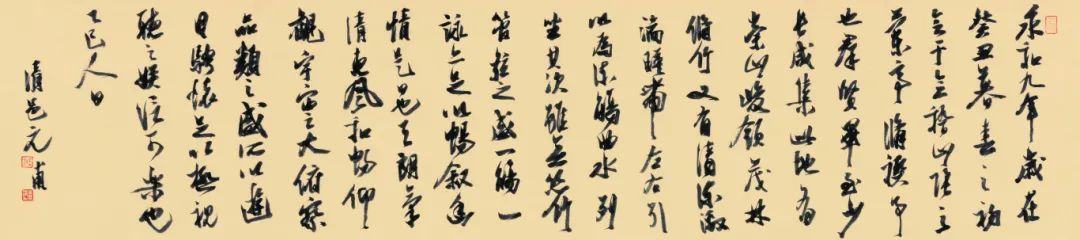 永和九年歲在
癸丑暮春之初
會于會稽山陰之
蘭亭脩禊事
也群賢畢至少
長咸集此地有
崇山峻領茂林
脩竹又有清流激
湍暎帶左右引
以為流觴曲水列
坐其次雖無絲竹
管弦之盛一觴一
詠亦足以暢敘幽
情是日也天朗氣
清惠風和暢仰
觀宇宙之大俯察
品類之盛所以遊
目騁懷足以極視
聽之娛信可樂也
乙巳人日
清邑元甫